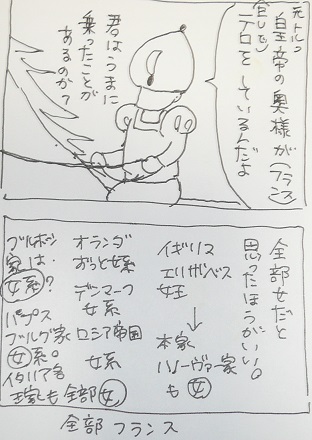 元トルコ
皇帝の奥様が(フランス)
テロをしているんだよ
君はうまに
乗ったことが
あるのか?
全部女だと
思ったほうがいい。
イギリス
エリザベス
女王
↓
本家
ハノーヴァー家
も女
オランダ
おっと女系
デンマーク
女系
ロシア帝国
女系
ブルボン
家は
女系?
ハプス
ブルグ家
女系。
イタリア名
王家も全部女
全部フランス